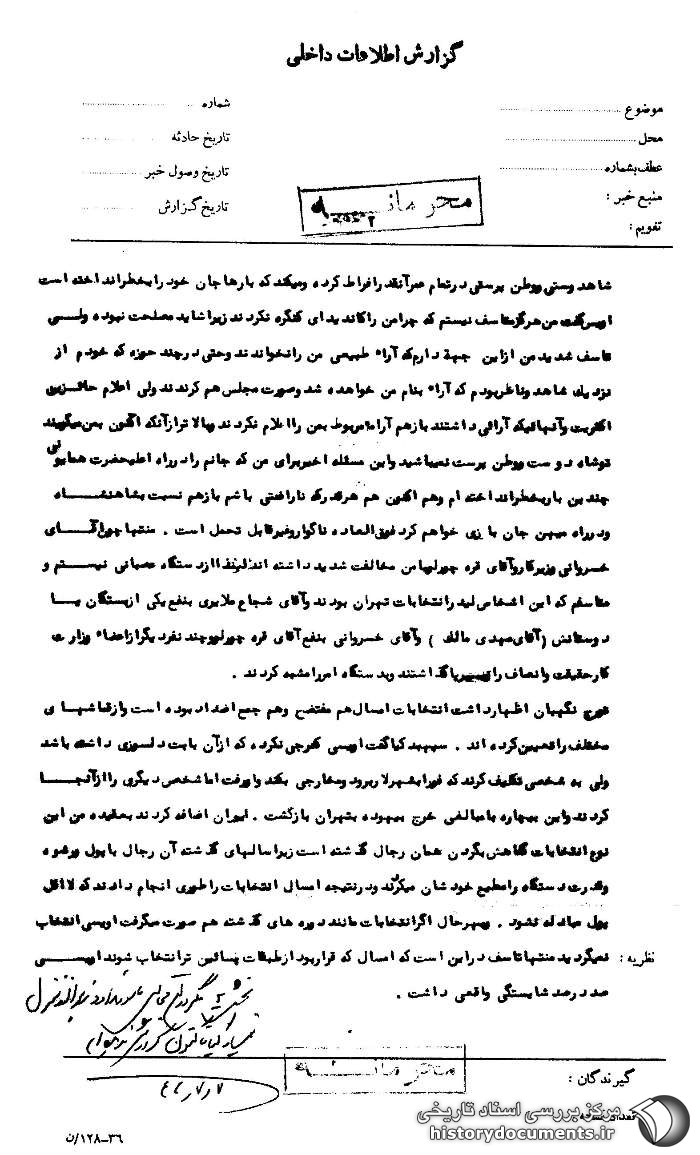 گزارش اطلاعات داخلی
موضوع
محل
عطف بشماره
منبع خبر :
تقویم :
شماره
تاریخ حادثه
تاریخ وصول خبر
تاریخ گزارش
محرمانــــه
شاهدوستی ووطن پرستی درتمام عمرآنقدرافراط کرده ومیکند که بارهاجان خود رابخطرانداخته است
اویسی گفت من هرگزمتاسف نیستم که چرامن راکاندیدای کنگره نکردند زیراشاید مصلحت نبوده ولــی
تاسف شدید من ازاین جهة دارم که آراء طبیعی من رانخواندند وحتی درچند حوزه که خودم از
نزدیك شاهد وناظربودم که آراء بنام من خوانده شد وصورت مجلس هم کردند ولی اعلام حائــزین
اکثریت وآنهائیکه آرائی داشتند بازهم آراء مربوط بمن رااعلام نکردند وبالاترازآنکه اکنون بمن میگویند
توشاه دوست ووطن پرست نمیباشید واین مسئله اخیربرای من که جانم رادرراه اعلیحضرت همایونی
چندین باربخطرانداخته ام وهم اکنون هم هرقدرکه ناراضی باشم بازهم نسبت بشاهنشــاه
ودرراه میهن جان بازی خواهم کرد فوق العاده ناگواروغیرقابل تحمل است . منتهاچون آقــای
خسروانی وزیرکاروآقای قره چورلوبامن مخالفت شدید داشته اند لذا ازدستگاه عصبانی نیستم و
متاسفم که این اشخاص لیدرانتخابات تهران بودند وآقای شجاع ملایری بنفع یکی ازبستگان یــا
دوستانش (آقای مهدی مالك ) وآقای خسروانی بنفع آقای قره چورلووچند نفردیگرازاعضاء وزارت
کارحقیقت وانصاف رازیرپاگذاشتند وبدستگاه امررامشتبه کردند .
نگهبان اظهارداشت انتخابات امسال هم مفتضح وهم جمع اضداد بوده است وازقماشهــای
مختلف راتعیین کرده اند . سپهبد کیاگفت اویسی خرجی نکرده که ازآن بابت دلسوزی داشته باشد
ولی به شخصی تکلیف کردند که فورابشهرلاربرود ومخارجی بکند واورفت اماشخص دیگری راازآنجــا
کردند واین بیچاره بامبالغی خرج بیهوده بتهران بازگشت . اضافه کردند بعقیده من این
نوع انتخابات گناهش بگردن همان رجال گذشته است زیراسالهای گذشته آن رجال باپول ورشوه
وقدرت دستگاه رامطیع خودشان میکردند ودرنتیجه امسال انتخابات راطوری انجام دادند که لااقل
پول مبادله نشود . بهرحال اگرانتخابات مانند دوره های گذشته هم صورت میگرفت اویسی انتخاب
نظریه :
نمیگردید منتهاتاسف دراین است که امسال که قراربود ازطبقات پائین ترانتخاب شوند اویســی
صددرصد شایستگی واقعی داشت .
محرمانــــه
گیرندگان :
۴۲/۷/۷
تعداد
۳۶-۱۲۸/ن
مرکز بررسی اسناد تاریخی
historydocuments.ir